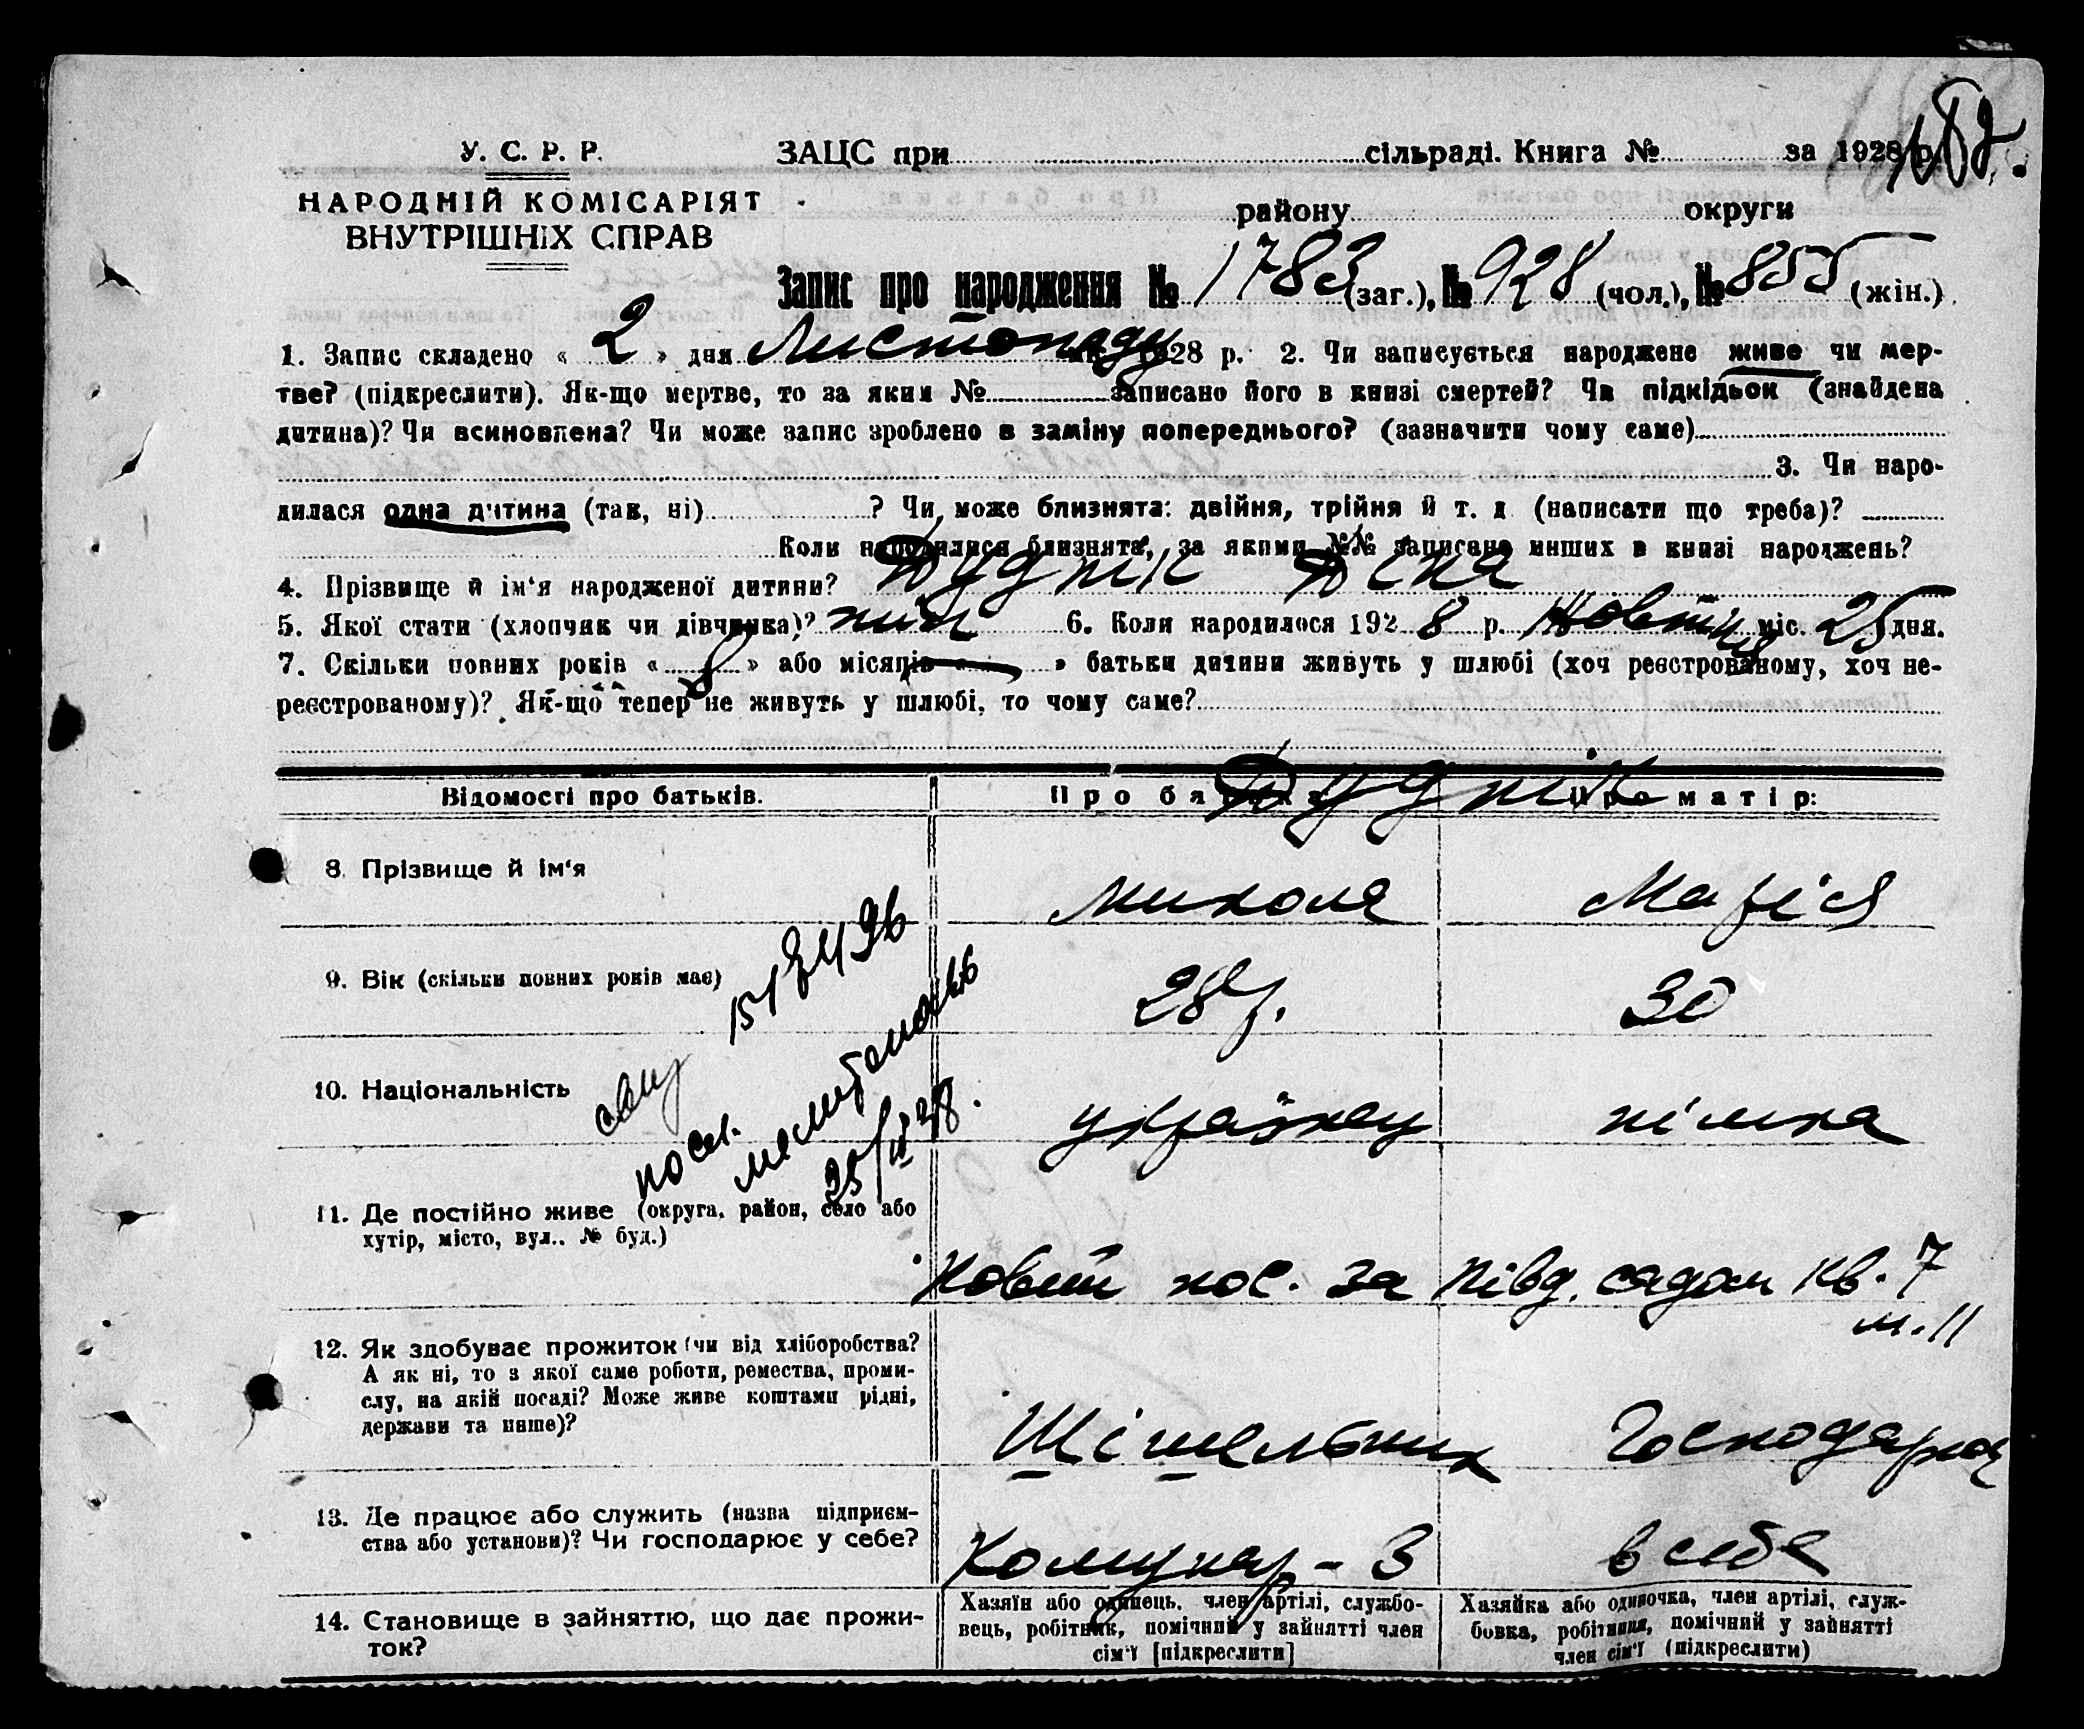 У. С. Р. Р.
НАРОДНІЙ КОМІСАРІЯТ
ВНУТРІШНІХ СПРАВ
ЗАЦС при сільраді. Книга № за 1928 р.
району округи
Запис про народження № 1783 (заг.), № 928 (чол.), № 855 (жін.).
1. Запис складено « 2 » дня Листопаду 1928 р. 2. Чи записується народжене живе чи мер-
тве? (підкреслити). Як-що мертве, то за яким № записано його в книзі смертей? Чи підкідьок (знайдена
дитина)? Чи всиновлена? Чи може запис зроблено в заміну попереднього? (зазначити чому саме)
3. Чи наро-
дилася одна дитина (так, ні) ? Чи, може близнята: двійня, трійня й т. д (написати що треба)?
Коли народилися близнята, за якими №№ записано инших в книзі народжень?
4. Прізвище й ім‘я народженої дитини? Дуднік
5. Якої стати (хлопчик чи дівчинка)? жін 6. Коли народилося 192 8 р. Жовтня міс. 25 дня.
7. Скільки повних років « 8 » або місяців « » батьки дитини живуть у шлюбі (хоч реєстрованому, хоч не-
реєстрованому)? Як-що тепер не живуть у шлюбі, то чому саме?
Відомості про батьків. Про батька Про матір:
Дуднік
8. Прізвище й ім‘я
Микола Марія
9. Вік (скільки повних років має)
28 р. 30
10. Національність
українец німка
11. Де постійно живе (округа, район, село або
хутір, місто, вул., № буд.)
Новий пос. за півд. садом кв. 7
м. 11
12. Як здобуває прожиток (чи від хліборобства?
А як ні, то з якої саме роботи, ремества, проми-
слу, на якій посаді? Може живе коштами рідні,
держави та инше)?
Шішельник Господарка
13. Де працює або служить (назва підприєм-
ства або установи)? Чи господарює у себе?
Комунар - 3 в себе
14. Становище в зайняттю, що дає прожи-
ток?
Хазяїн або одинець, член артілі, службо-
вець, робітник, помічний у зайнятті член
сім‘ї [підкреслити]
Хазяйка або одиночка, член артілі, служ-
бовка, робітниця, помічний у зайнятті
член сім‘ї (підкреслити)